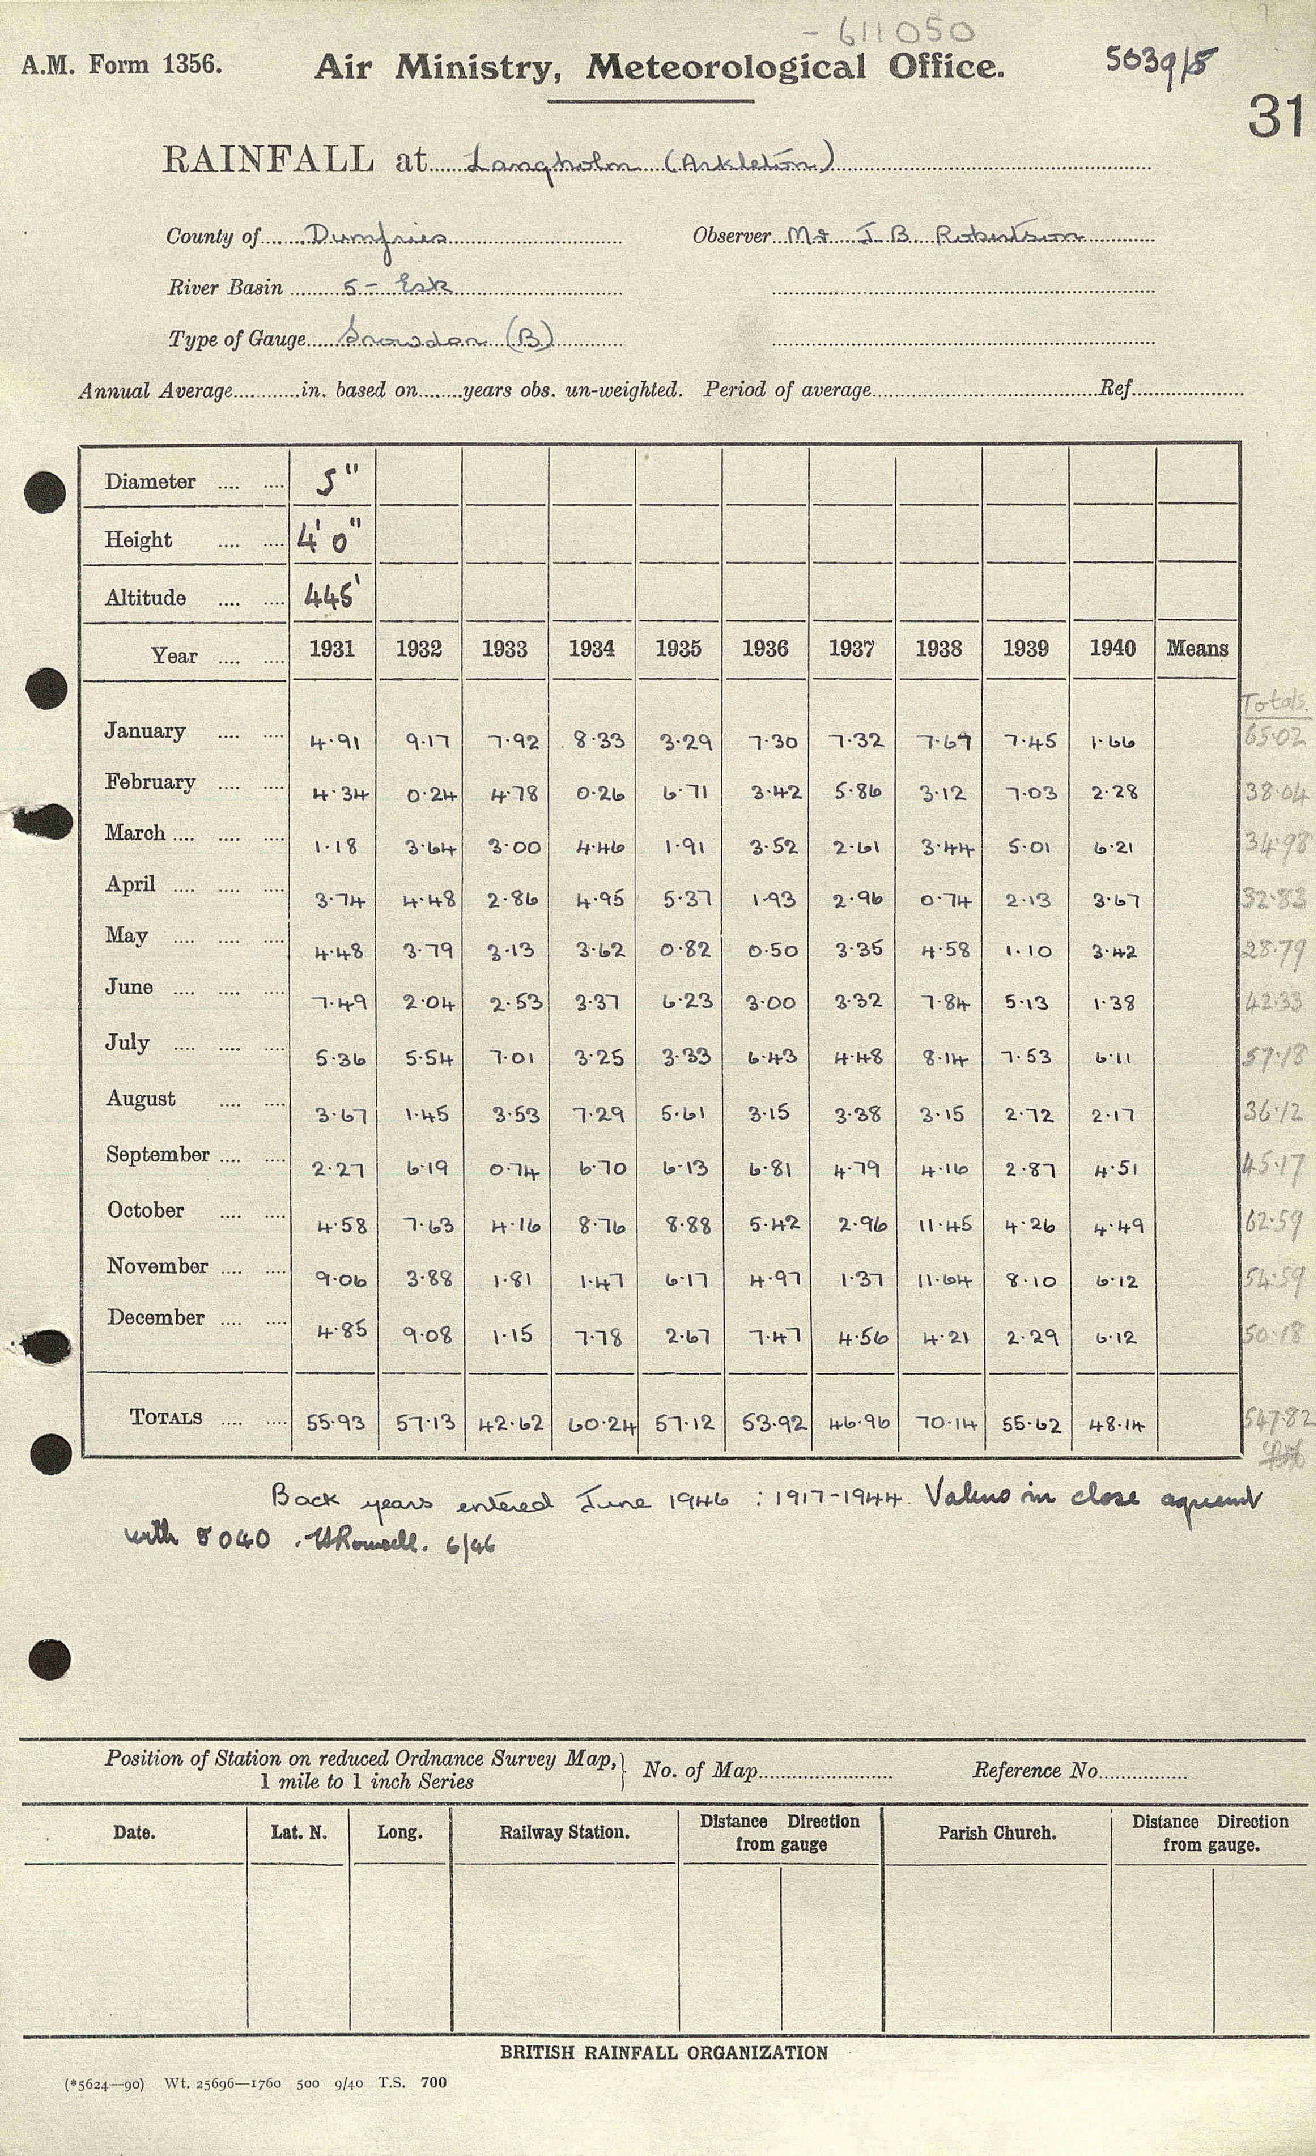 - 611050
A.M. Form 1356. Air Ministry, Meteorological Office. 5039/8
31
RAINFALL at Langholm (Arkleton)
County of Dumfries Observer Mr J B Robertson
River Basin 5 - Esk
Type of Gauge Snowdon (B)
Annual Average in. based on years obs. un-weighted. Period of average Ref
Diameter 5"
Height 4' 0"
Altitude 445'
Year 1931 1932 1933 1934 1935 1936 1937 1938 1939 1940 Means
Totals
January 4.91 9.17 7.92 8.33 3.29 7.30 7.32 7.67 7.45 1.66 65.02
February 4.34 0.24 4.78 0.26 6.71 3.42 5.86 3.12 7.03 2.28 38.04
March 1.18 3.64 3.00 4.46 1.91 3.52 2.61 3.44 5.01 6.21 34.98
April 3.74 4.48 2.86 4.95 5.37 1.93 2.96 0.74 2.13 3.67 32.83
May 4.48 3.79 3.13 3.62 0.82 0.50 3.35 4.58 1.10 3.42 28.79
June 7.49 2.04 2.53 3.37 6.23 3.00 3.32 7.84 5.13 1.38 42.33
July 5.36 5.54 7.01 3.25 3.33 6.43 4.48 8.14 7.53 6.11 57.18
August 3.67 1.45 3.53 7.29 5.61 3.15 3.38 3.15 2.72 2.17 36.12
September 2.27 6.19 0.74 6.70 6.13 6.81 4.79 4.16 2.87 4.51 45.17
October 4.58 7.63 4.16 8.76 8.88 5.42 2.96 11.45 4.26 4.49 62.59
November 9.06 3.88 1.81 1.47 6.17 4.97 1.37 11.64 8.10 6.12 54.59
December 4.85 9.08 1.15 7.78 2.67 7.47 4.56 4.21 2.29 6.12 50.18
TOTALS 55.93 57.13 42.62 60.24 57.12 53.92 46.96 70.14 55.62 48.14 547.82
Back years entered June 1946 : 1917-1944. Values in close agreemt
with 5040. 6/46
Position of Station on reduced Ordnance Survey Map, No. of Map Reference No.
1 mile to 1 inch Series
Date. Lat. N. Long. Railway Station. Distance Direction from gauge Parish Church. Distance Direction from gauge.
BRITISH RAINFALL ORGANIZATION
(*5624—90) Wt. 25696—1760 500 9/40 T.S. 700